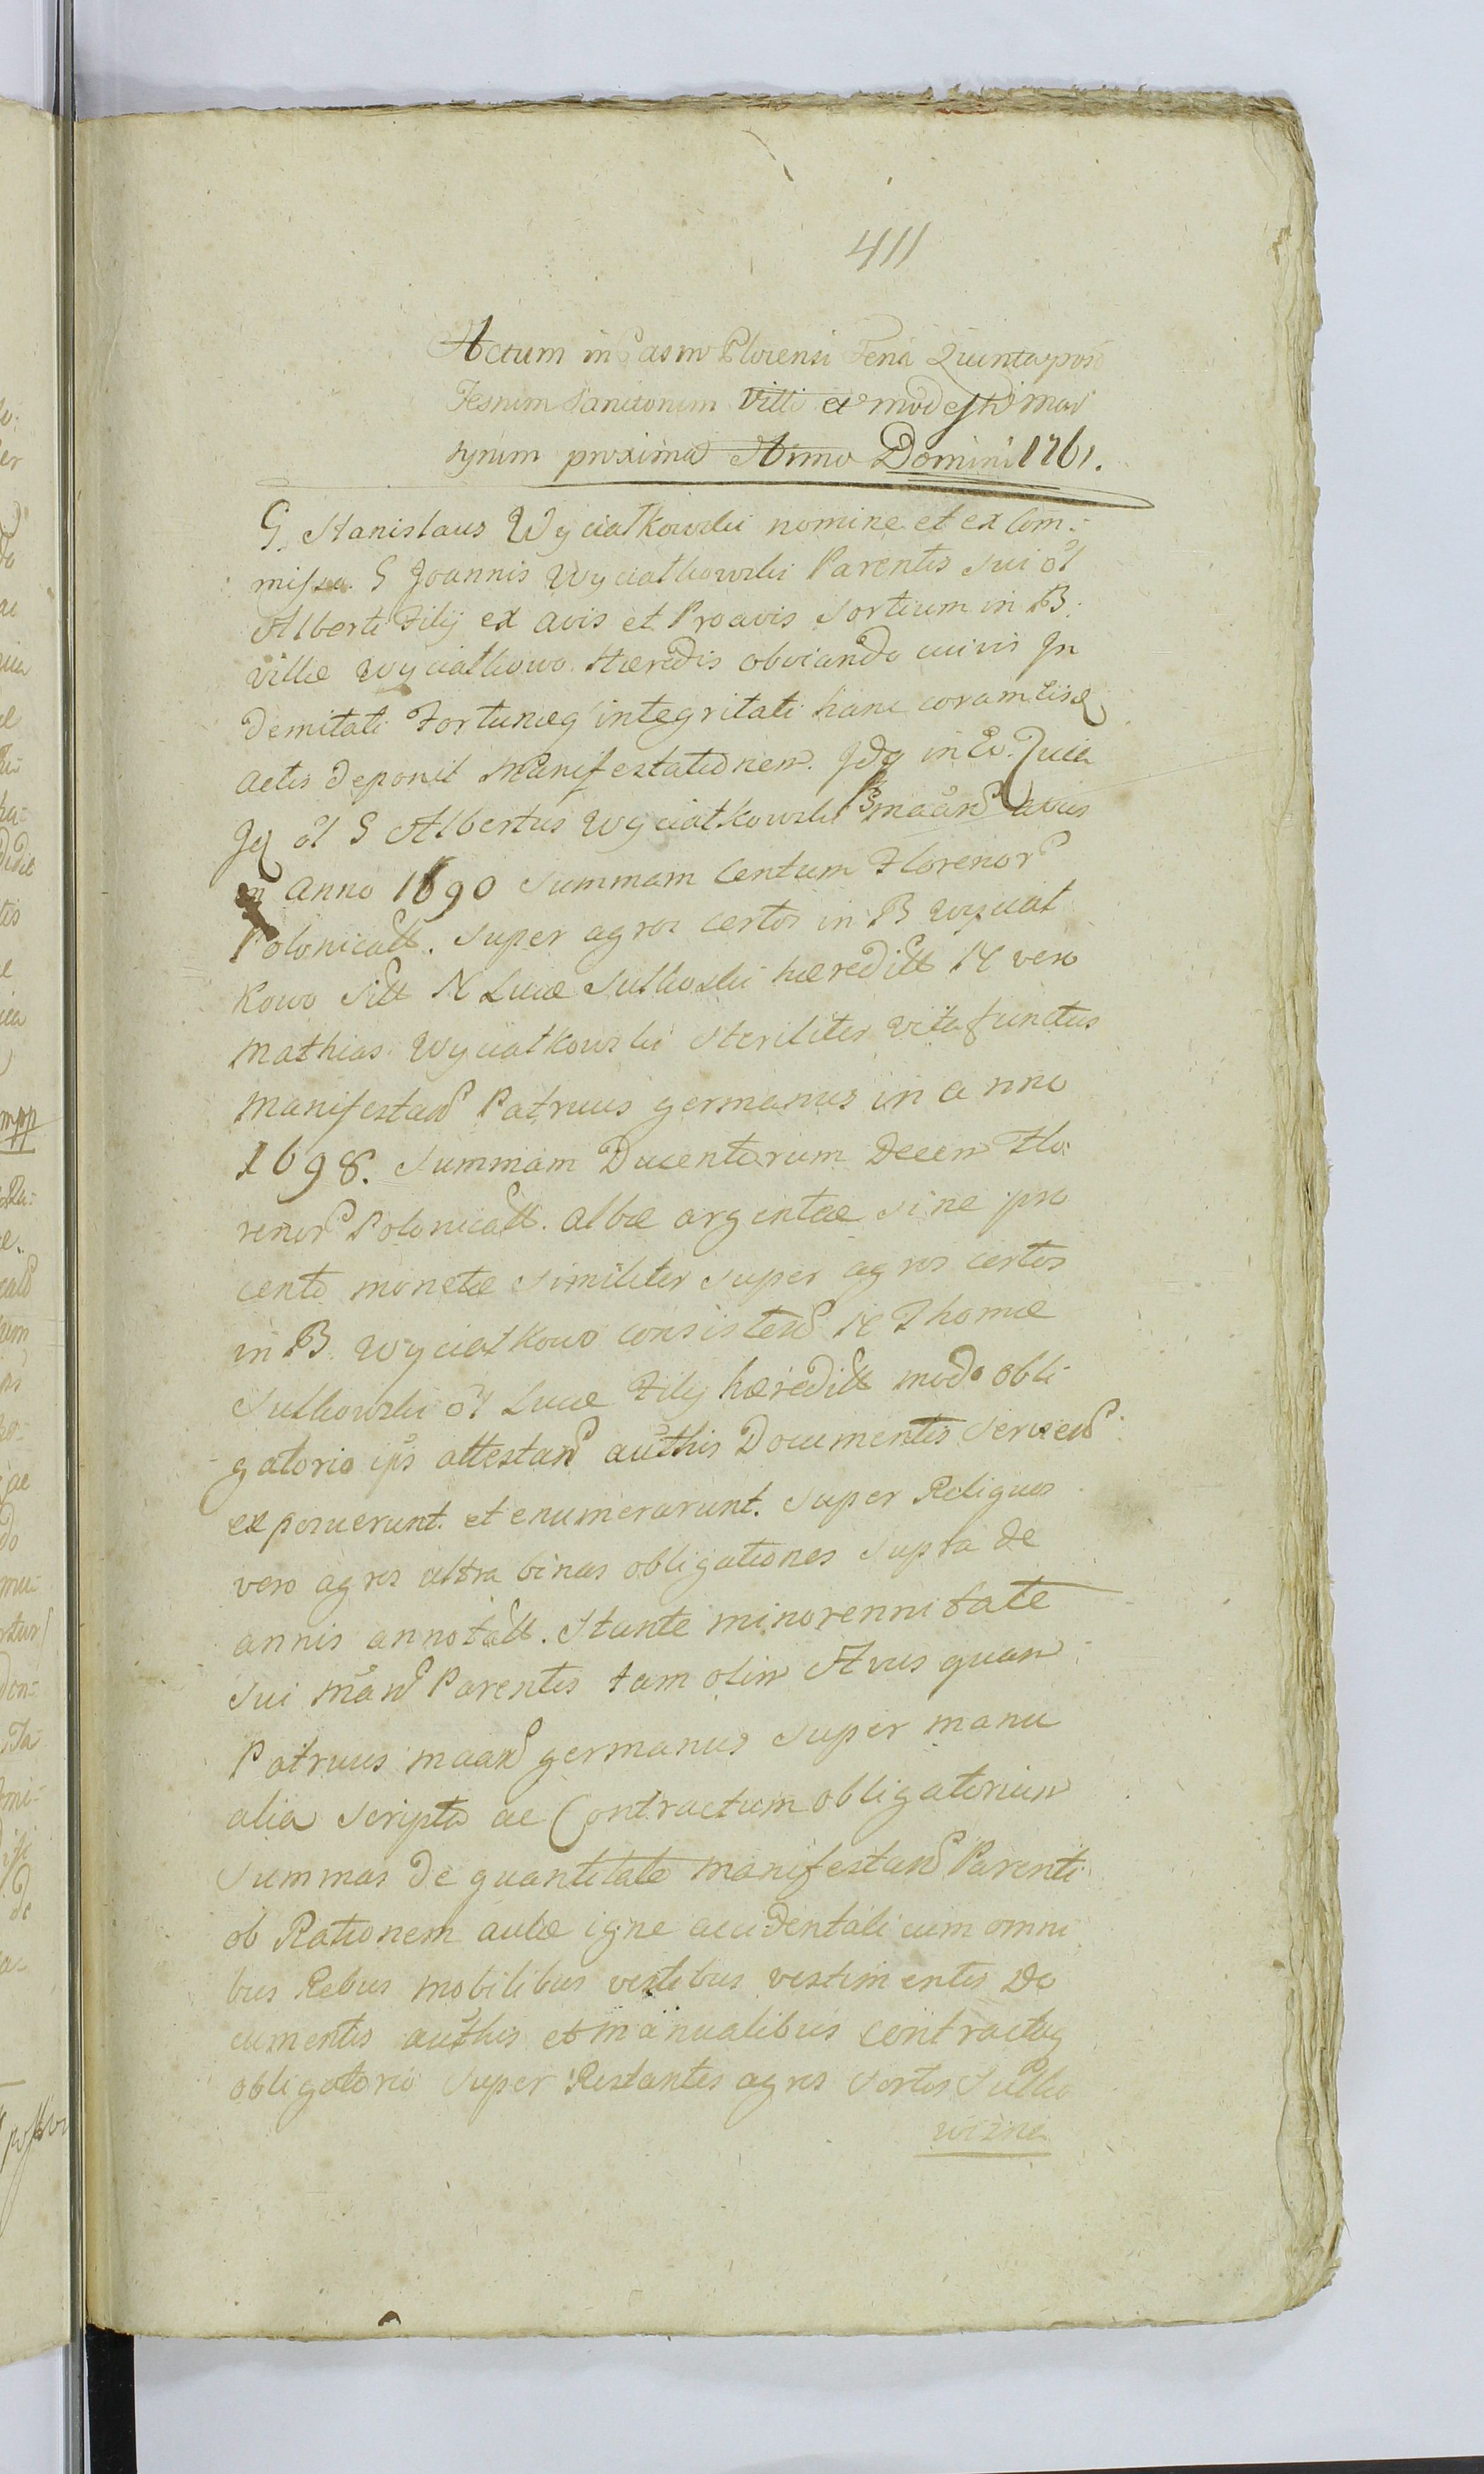 411
Actum in Castro Plocensi Feria Quinta post
Festum Sanctorum Viti et modesti Mar
tyrum proxima Anno Domini 1761.
G. Stanislaus Wyciatkowski nomine et ex Com-
missu G Joannis Wyciatkowski Parentis sui ol
Alberti Filij ex avis et Proavis sortium in B.
villa Wyciatkowo Hæredis obviando cuivis In
demnitati Fortunæq integritati hanc coram
actis deponit Manifestationem. Idq in Eo. Quia
Iq ol G Albertus Wyciatkowski avus
in Anno 1690 summam Centum Florenor
Polonicall. super agros certos in B Wyciat
kowo sitt N Lucæ Sutkoski hæreditt N vero
Mathias Wyciatkowski steriliter vita functus
Manifestan Patruus germanus in anno
1698. summam Ducentorum Decem Flo
renor Polonicall. albæ argenteæ sine pro
cento monetæ similiter super agros certos
in B. Wyciatkowo consisten N Thomæ
Sutkowski ol Lucæ Filij hæreditt modo obli
gatorio ips attestan authis Documentis
exposuerunt et enumerarunt. super Reliquos
vero agros ultra binas obligationes supra de
annis annotatt. Stante minorennitate
sui man Parentis tam olim Avus quam
Patruus maan germanus super manu
alia scripta ac Contractum obligatorium
Summas de quantitate manifestan Parenti
ob Rationem aulæ igne accidentali cum omni
bus Rebus mobilibus vestibus vestimentis Do
cumentis authis et manualibus contractuq
obligatorio super Restantes agros sortis Sutko
wizna